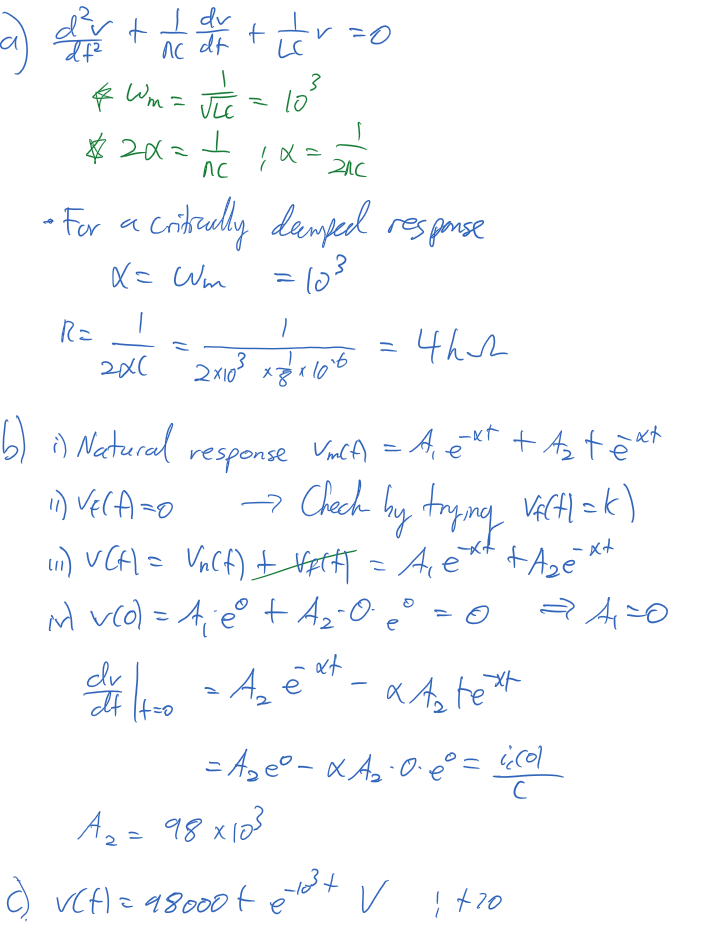 a) d²v/dt² + 1/RC dv/dt + 1/LC v = 0
* ωn = 1/√LC = 10³
* 2α = 1/RC ; α = 1/2RC
• For a critically damped response
α = ωn = 10³
R = 1/2αC = 1/(2×10³ × 1/8 × 10⁻⁶) = 4kΩ
b) i) Natural response vn(t) = A₁e^-αt + A₂te^-αt
ii) vf(t) = 0 → Check by trying vf(t) = k)
iii) v(t) = vn(t) + vf(t) = A₁e^-αt + A₂e^-αt
iv) v(0) = A₁·e⁰ + A₂·0·e⁰ = 0 ⇒ A₁ = 0
dv/dt |t=0 = A₂e^-αt - αA₂te^-αt
= A₂e⁰ - αA₂·0·e⁰ = ic(0)/C
A₂ = 98 × 10³
c) v(t) = 98000t e^-10³t V ; t>0